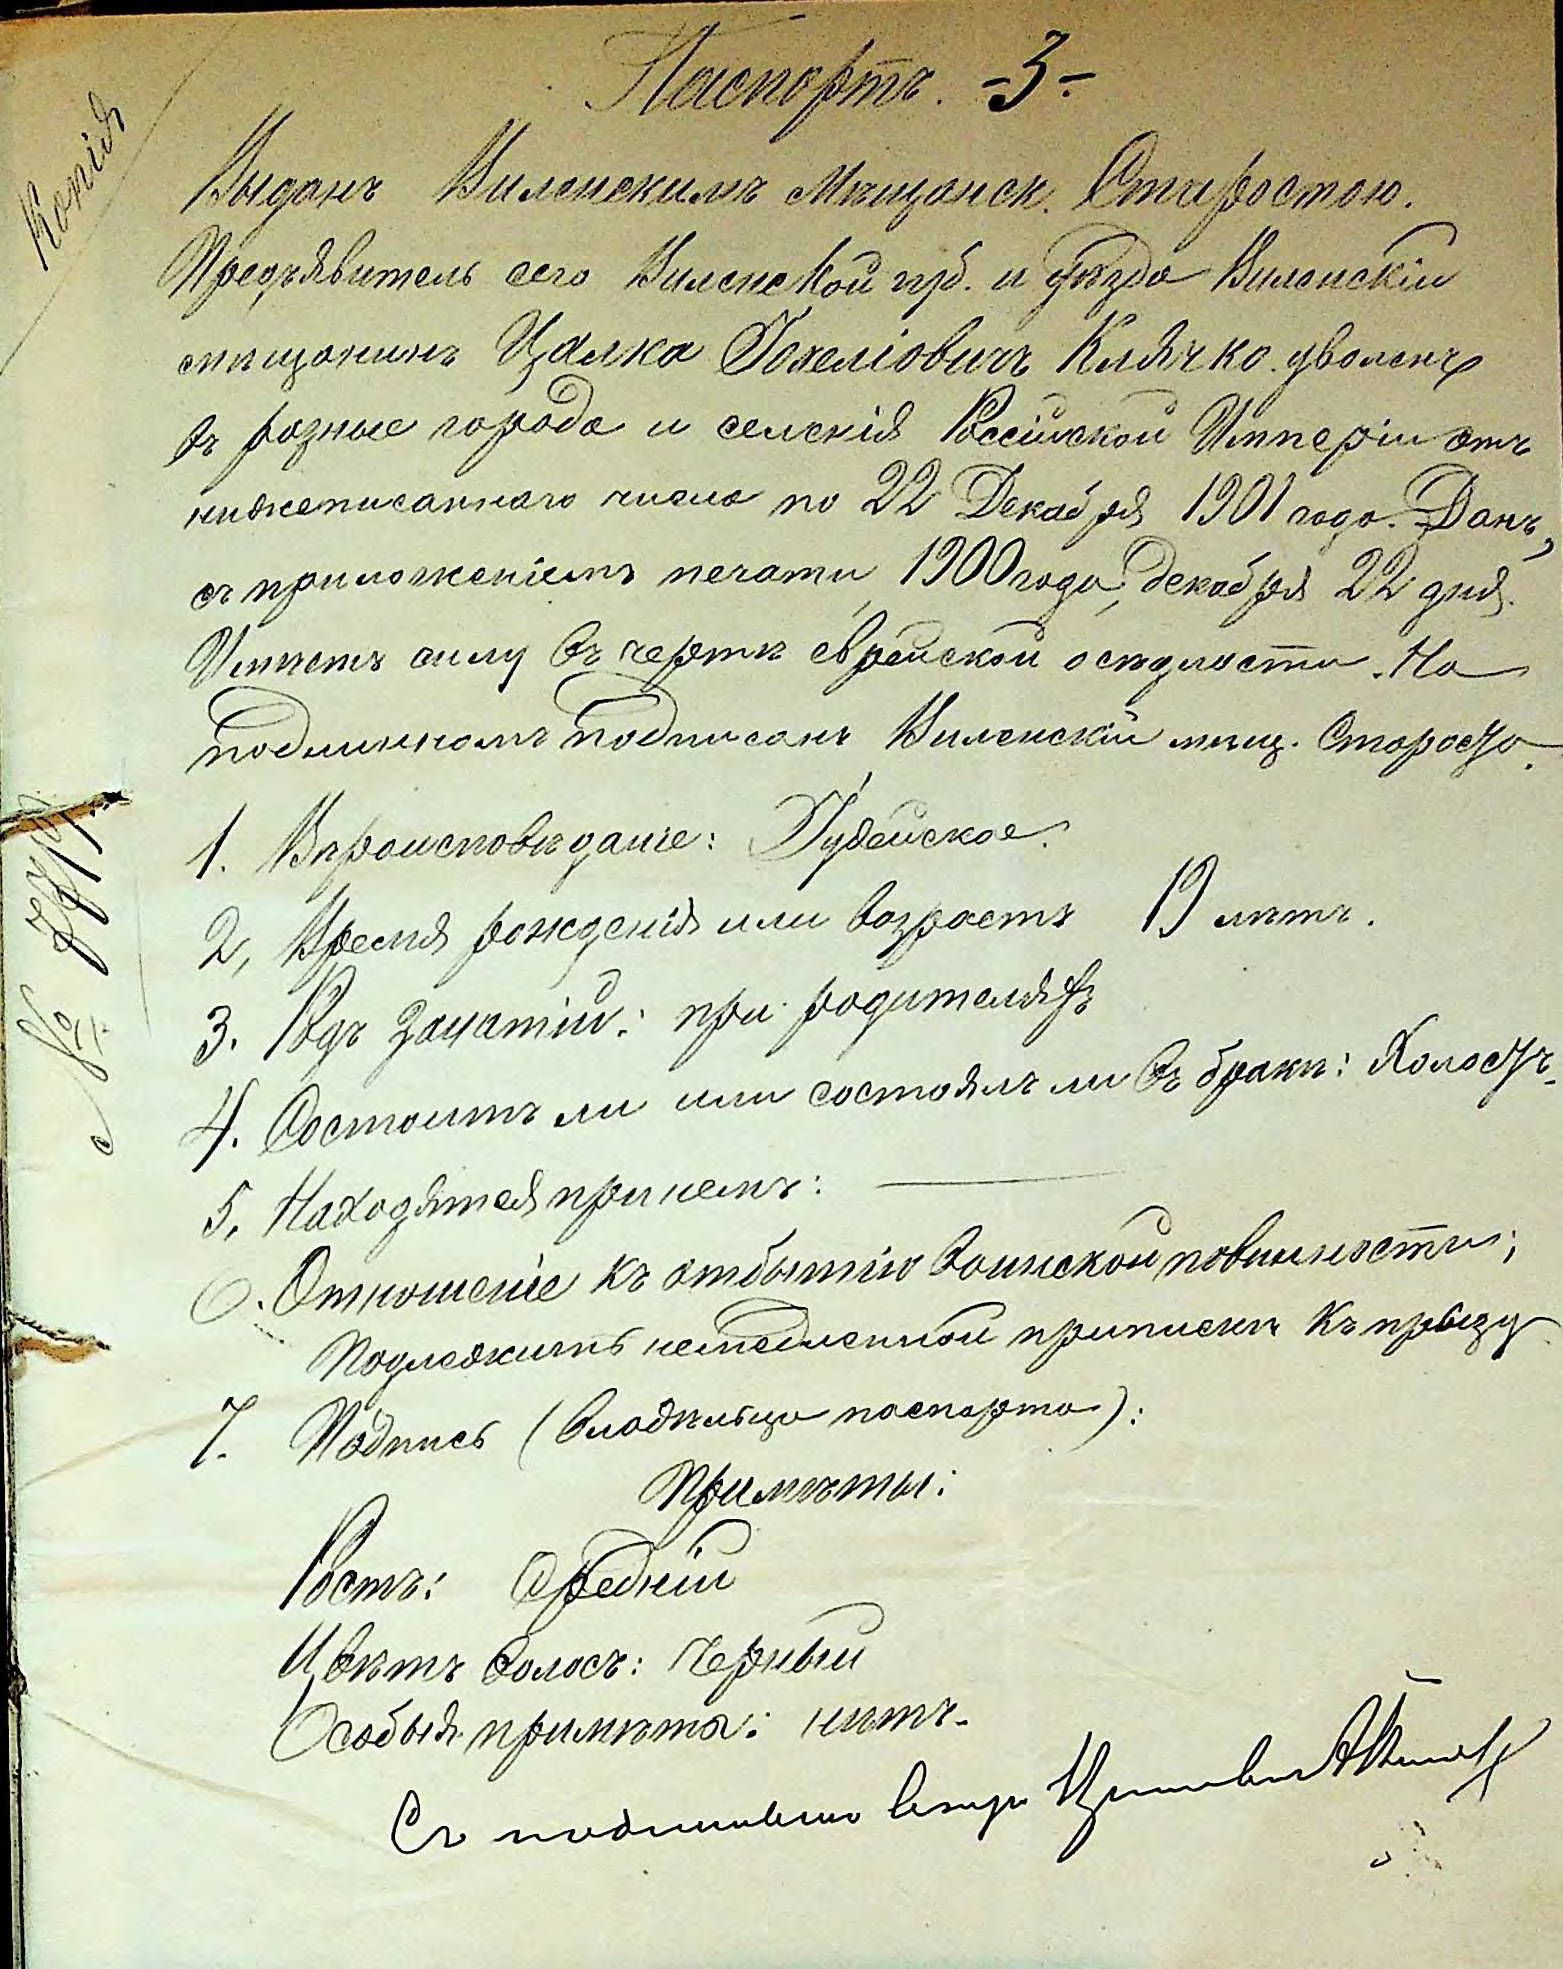 Копія
Паспортъ. -3-
Выданъ Виленскимъ Мѣщанск. Старостою.
Предъявитель сего Виленской губ. и уѣзда Виленскій
мѣщанинъ Цалка Іохеліовичъ Клячко уволенъ
въ разные города и селенія Россійской Имперіи отъ
нижеписаннаго числа по 22 Декабря 1901 года. Данъ,
съ приложеніемъ печати, 1900 года, декабря 22 дня.
Имѣетъ силу въ чертѣ еврейской осѣдлости. На
подлинномъ подписанъ Виленскій мѣщ. Староста.
1. Вѣроисповѣданіе: Іудейское.
2, Время рожденія или возрастъ 19 лѣтъ.
3. Родъ занятій: при родителяхъ
4. Состоитъ ли или состоялъ ли въ бракѣ: Холостъ.
5, Находятся при немъ: —
6. Отношеніе къ отбытію воинской повинности:
Подлежитъ немедленной припискѣ къ призыву
7. Подпись (владѣльца паспорта):
Примѣты:
Ростъ: Средній
Цвѣтъ волосъ: Черный
Особыя примѣты: нѣтъ.
Съ подлиннымъ вѣрно
№